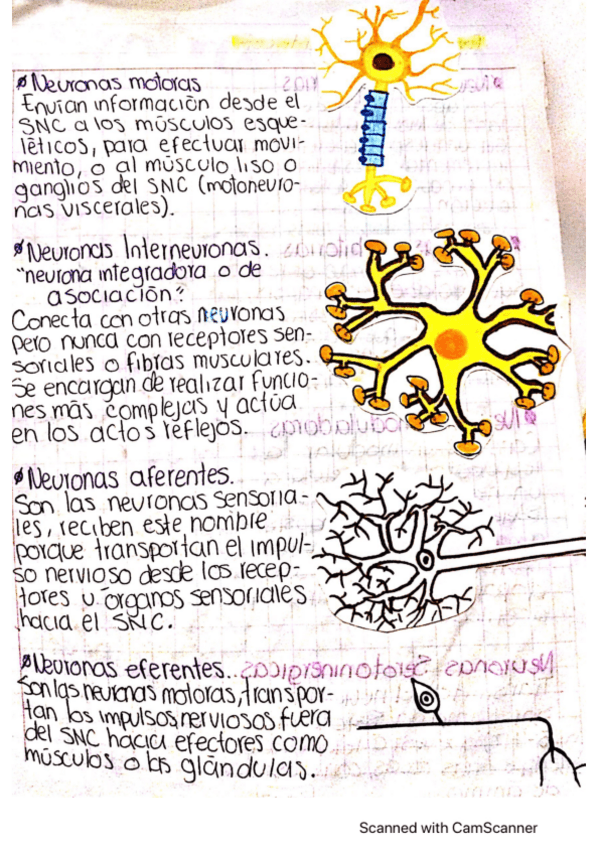 Neuronas motoras
Envían información desde el
SNC a los músculos esque-
léticos, para efectuar movi-
miento, o al músculo liso o
ganglios del SNC (motoneuro-
nas viscerales).
Neuronas Interneuronas.
"neurona integradora o de
asociación"
Conecta con otras neuronas
pero nunca con receptores sen-
soriales o fibras musculares.
Se encargan de realizar funcio-
nes más complejas y actúa
en los actos reflejos.
Neuronas aferentes.
Son las neuronas sensoria-
les, reciben este nombre
porque transportan el impul-
so nervioso desde los recep-
tores u órganos sensoriales
hacia el SNC.
Neuronas eferentes..
Son las neuronas motoras, transpor-
tan los impulsos nerviosos fuera
del SNC hacia efectores como
músculos o las glándulas.
Neuronas Serotoninergicas
Scanned with CamScanner